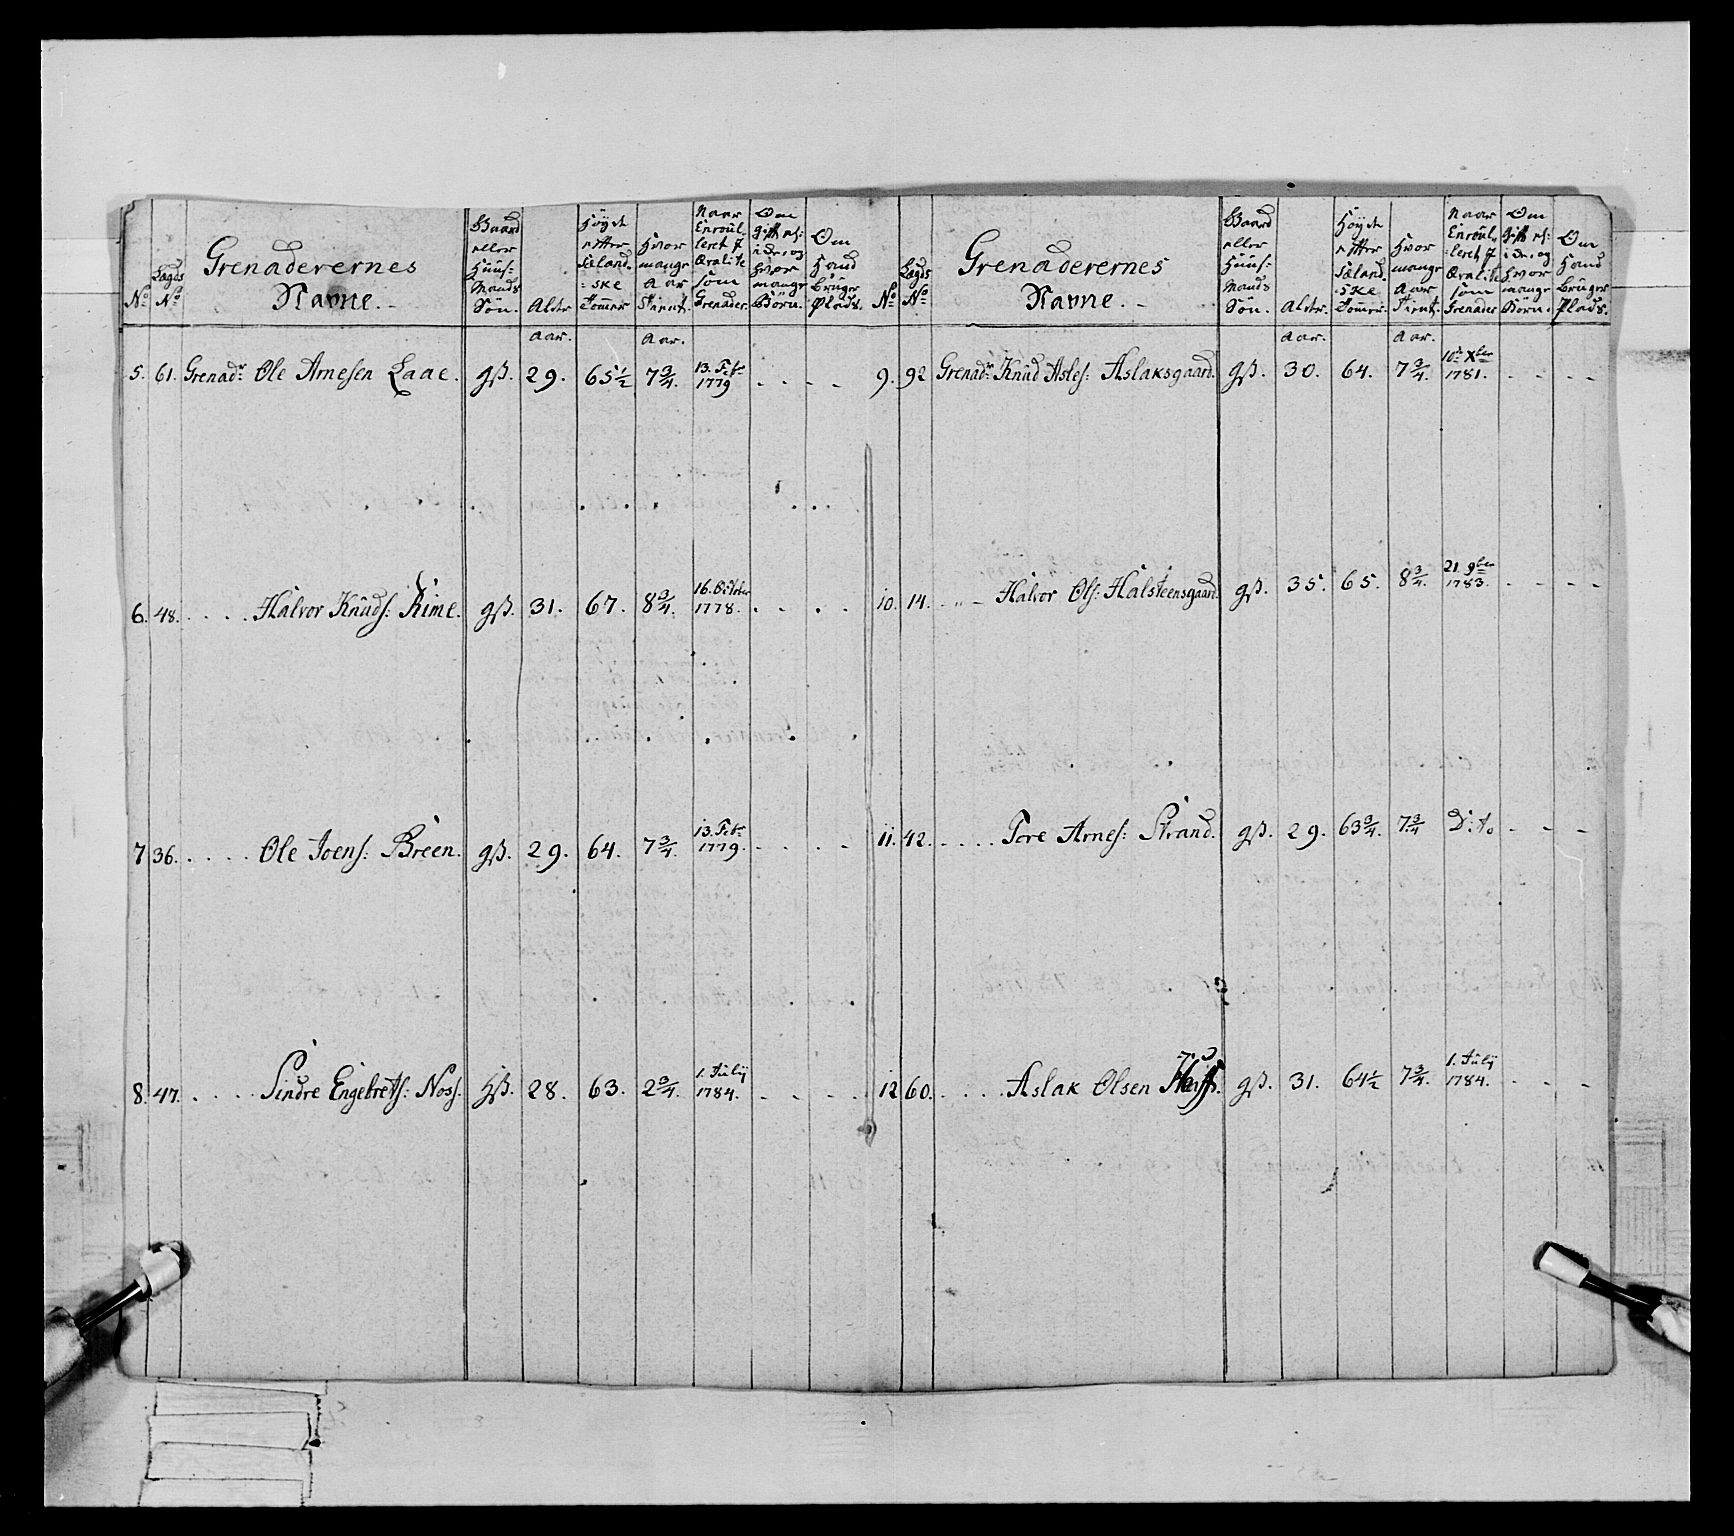 No
Lægds No
Grenaderernes Navne.
Gaard eller Huus: Mands Søn.
Alder
Høyde efter Siæland: ske Tommer
Hvor mange Aar Tient.
Naar Enroul: leret som Grenader.
Om gift og hvor mange Børn.
Om Hand Bruger Plads.
No
Lægds No
Grenaderernes Navne.
Gaard eller Huus: Mands Søn.
Alder.
Høyde efter Siæland: ske Tommer.
Hvor mange Aar Tient.
Naar Enroul: leret som Grenader
Om gift og hvor mange Børn.
Om Hand Bruger Plads.
Aar. Aar. Aar. Aar.
5. 61. Grenadr Ole Arnesen Laae. gß. 29. 65½ 7¾. 13. Feb. 1779 . . . .
6. 48. . . . . Halvor Knuds: Rime. gß. 31. 67. 8¾. 16. October 1778. . . . .
7 36. . . . . Ole Joens: Breen. gß. 29. 64. 7¾. 13. Feb. 1779. . . . .
8. 47. . . . . Sindre Engebrets: Noss. hß. 28. 63. 2¾. 1. July 1784. . . . .
9. 92 Grenadr Knud Asles: Aslaksgaard. gß. 30. 64. 7¾. 10de Xber 1781. - - - -
10. 14. - „ - Halvor Ols: Halsteensgaard. gß. 35. 65. 8¾. 21. 9ber 1783. - - - -
11. 42. . . . . Tore Arnes: Strand. gß. 29. 63¾. 7¾ Dito - - -
12 60. . . . . Aslak Olsen gß. 31. 64½ 7¾. 1. July 1784. - - -